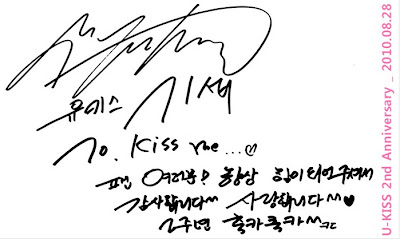 유키스 기섭
To. Kiss me...♡
팬 여러분! 항상 힘이 되어주셔서
감사합니다^^ 사랑합니다^^♥
2주년 축카축카^^
U-KISS 2nd Anniversary _ 2010.08.28